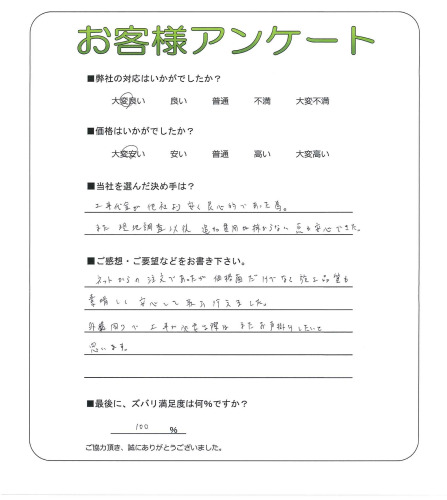 お客様アンケート
■弊社の対応はいかがでしたか?
大変良い 良い 普通 不満 大変不満
■価格はいかがでしたか?
大変安い 安い 普通 高い 大変高い
■当社を選んだ決め手は?
工事代金が他社より安く良心的であった為。
また現地調査以後 追加費用も掛からない点も安心できた。
■ご感想・ご要望などをお書き下さい。
ネットからの注文であったが価格面だけでなく施工品質も
素晴しく安心して
外構周りで工事が必要な際は またお声掛けしたいと
思います。
■最後に、ズバリ満足度は何%ですか?
100 %
ご協力頂き、誠にありがとうございました。